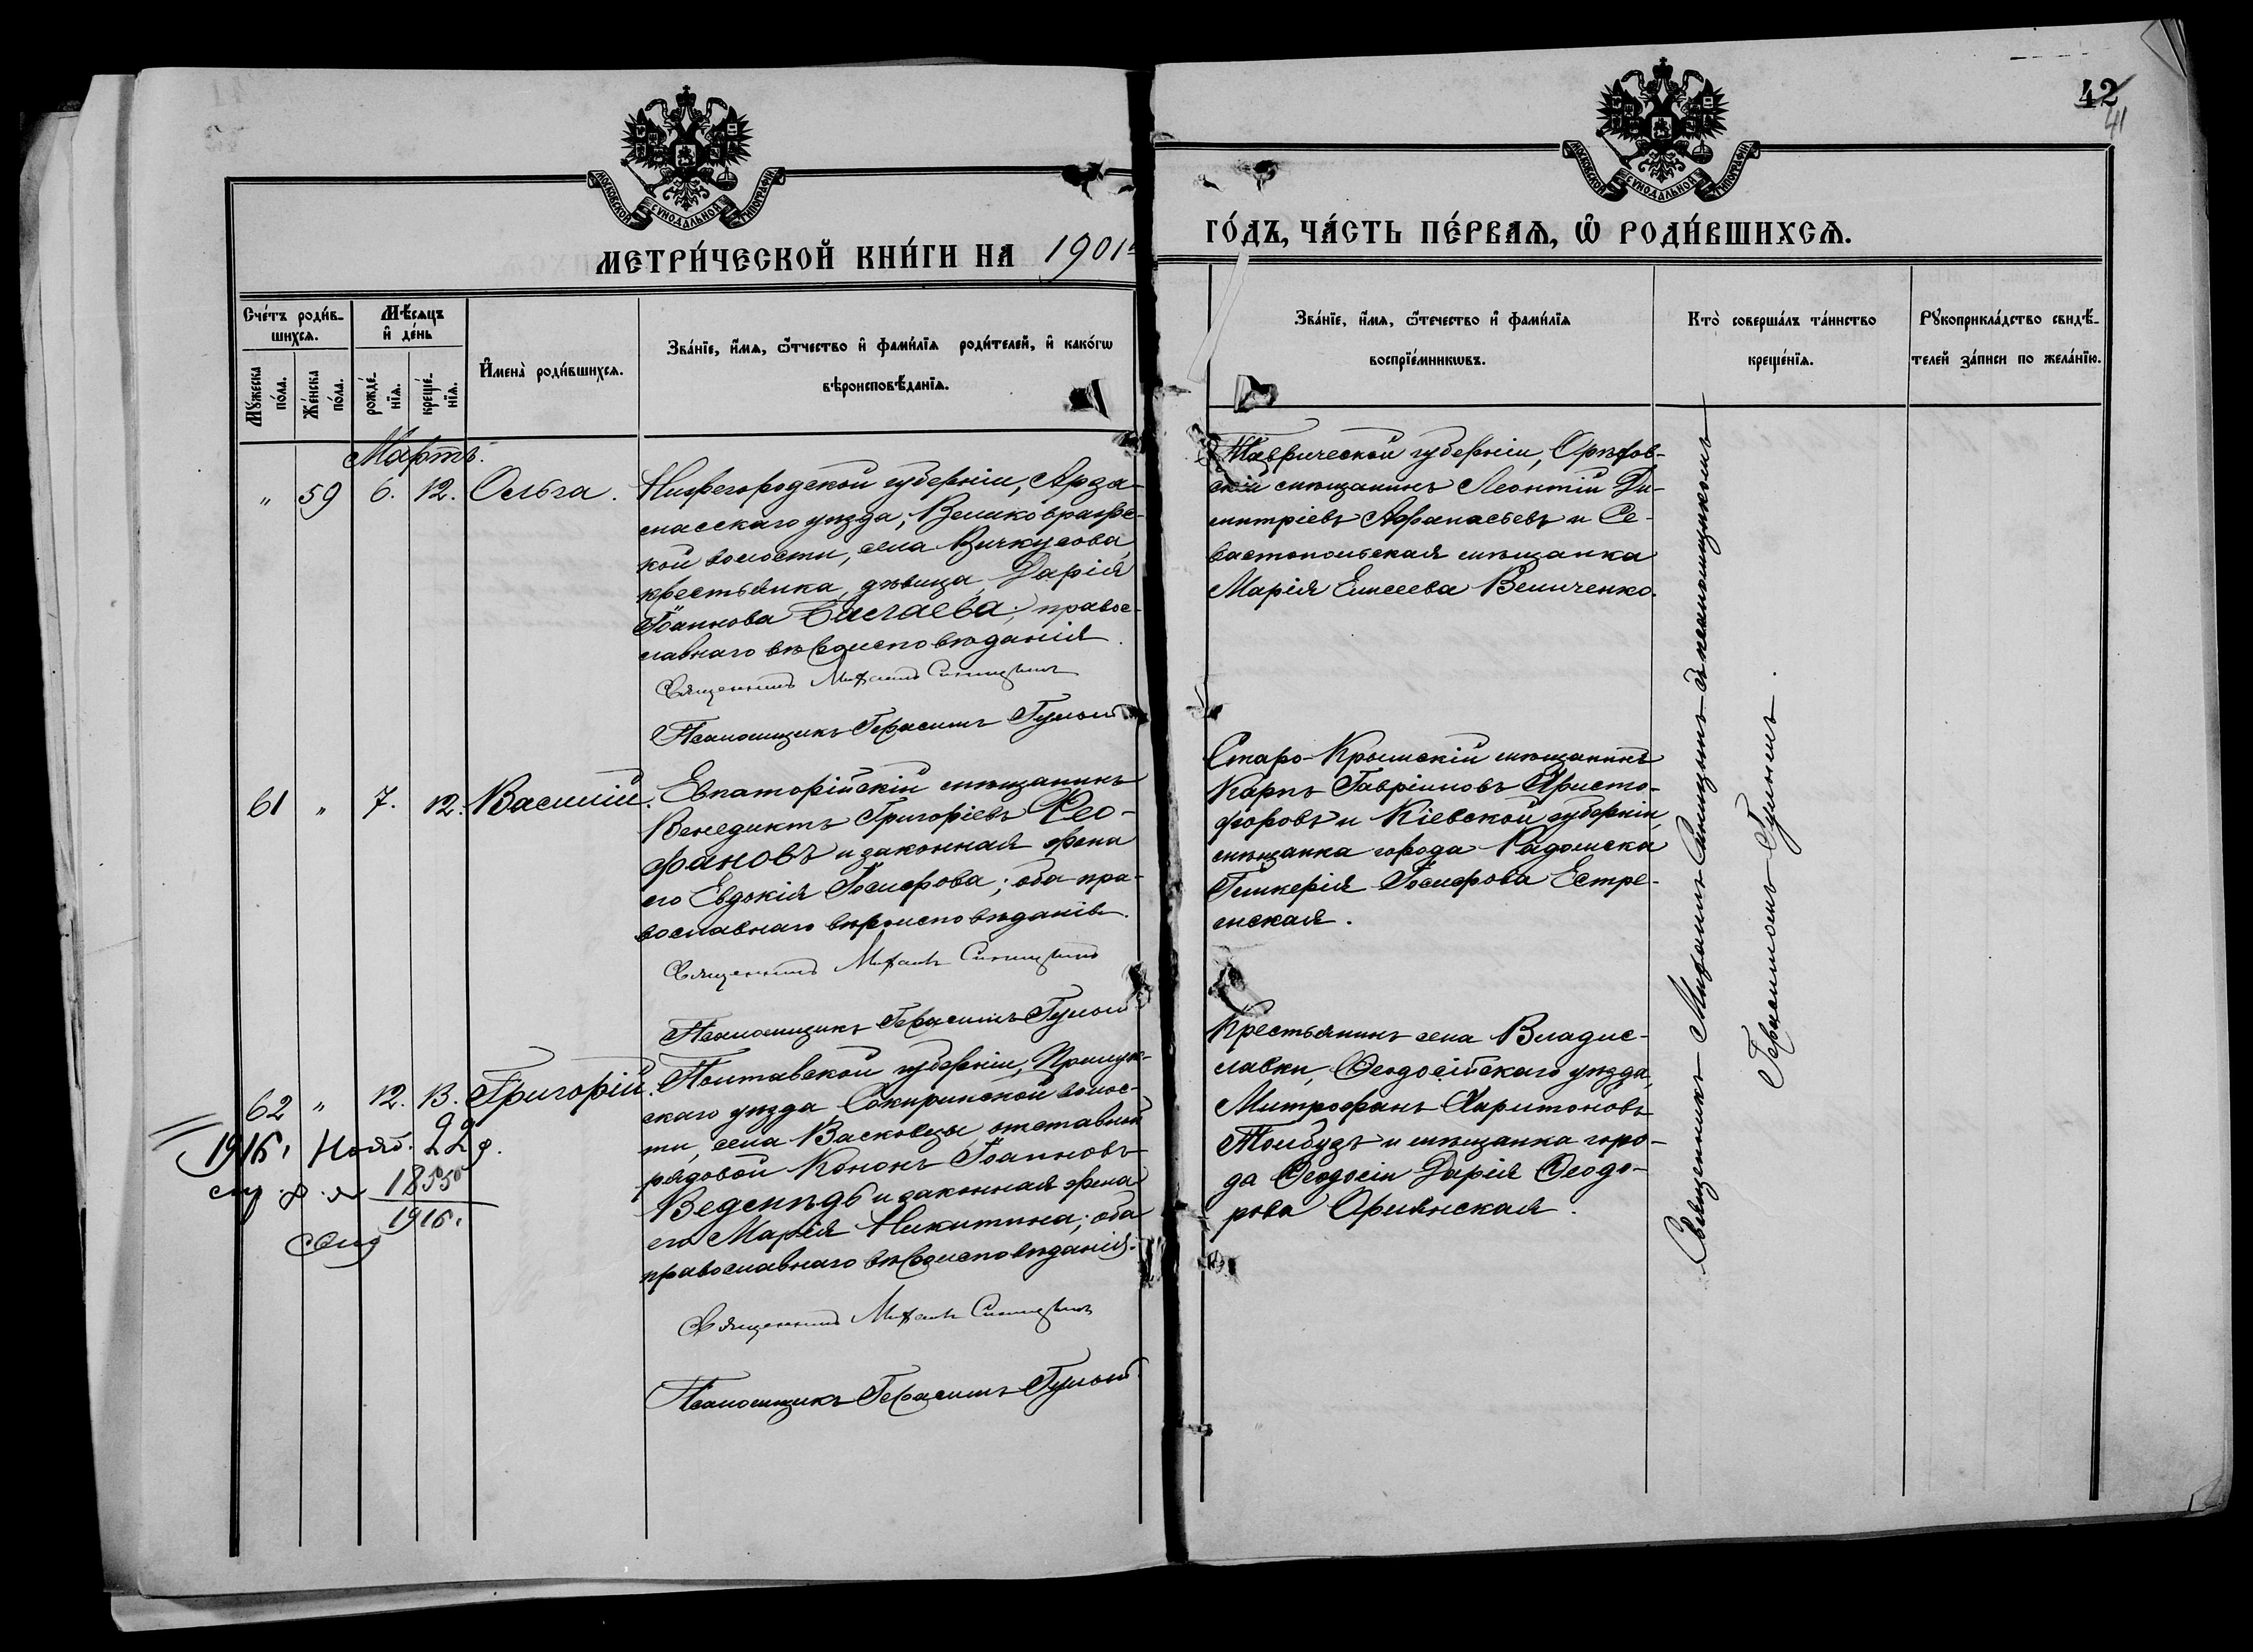 42
41
МОСКОВСКОЙ СѴНОДАЛЬНОЙ ТИПОГРАФІИ
МОСКОВСКОЙ СѴНОДАЛЬНОЙ ТИПОГРАФІИ
МЕТРИ́ЧЕСКОЙ КНИ́ГИ НА 1901
ГО́ДЪ, ЧА́СТЬ ПЕ́РВАѦ, Ѡ҆ РОДИ́ВШИХСѦ.
Сче́тъ роди́в-
шихсѧ.
Мꙋ́жеска
по́ла.
Же́нска
по́ла.
Мѣ́сѧцъ
и҆ де́нь
рожде́-
нїѧ.
креще́-
нїѧ.
И҆мена̀ роди́вшихсѧ.
Зва́нїе, и҆́мѧ, ѻ҆́тчество и҆ фами́лїѧ роди́телей, и҆ како́гѡ
вѣроисповѣ́данїѧ.
Зва́нїе, и҆́мѧ, ѻ҆те́чество и҆ фами́лїѧ
воспрїе́мникѡвъ.
Кто̀ соверша́лъ та́инство
креще́нїѧ.
Рꙋкоприкла́дство свидѣ́-
телей за́писи по жела́нїю.
Мартъ.
" 59 6. 12. Ольга.
Нижегородской губерніи, Арза-
масскаго уѣзда, Великовражс-
кой волости, села Вичкусова
крестьянка, дѣвица Дарія
Іоаннова Бигаева; правос-
лавнаго вѣроисповѣданія.
Священникъ Михаилъ Синицынъ
Псаломщикъ Герасимъ Гумый
Таврической губерніи, Орѣхов-
скій мѣщанинъ Леонтій Ди-
митріевъ Афанасьевъ и Се-
вастопольская мѣщанка
Марія Елисеева Величенко.
61 " 7. 12. Василій.
Евпаторійскій мѣщанинъ
Венедиктъ Григоріевъ Фео-
фановъ и законная жена
его Евдокія Іосифова; оба пра-
вославнаго вѣроисповѣданія.
Священникъ Михаилъ Синицынъ
Псаломщикъ Герасимъ Гумый
Старо-Крымскій мѣщанинъ
Карпъ Гавріиловъ Христо-
форовъ и Кіевской губерніи,
мѣщанка города Радомсла
Гликерія Іосифова Естре-
мская.
62 " 12. 13. Григорій.
Полтавской губерніи, Прилук-
скаго уѣзда Сокиринской волос-
ти, села Васковцы отставной
рядовой Кононъ Іоанновъ
Ведмѣдь и законная жена
его Марія Никитина; оба
православнаго вѣроисповѣданія.
Священникъ Михаилъ Синицынъ
Псаломщикъ Герасимъ Гумый
Крестьянинъ села Владис-
лавки, Ѳеодосійскаго уѣзда,
Митрофанъ Харитоновъ
Толбузъ и мѣщанка горо-
да Ѳеодосіи Дарія Ѳеодо-
рова Орлянская.
1916 Нояб. 22 д.
1855
1916
Свид
Священникъ Михаилъ Синицынъ съ псаломщикомъ
Герасимомъ Гумымъ.